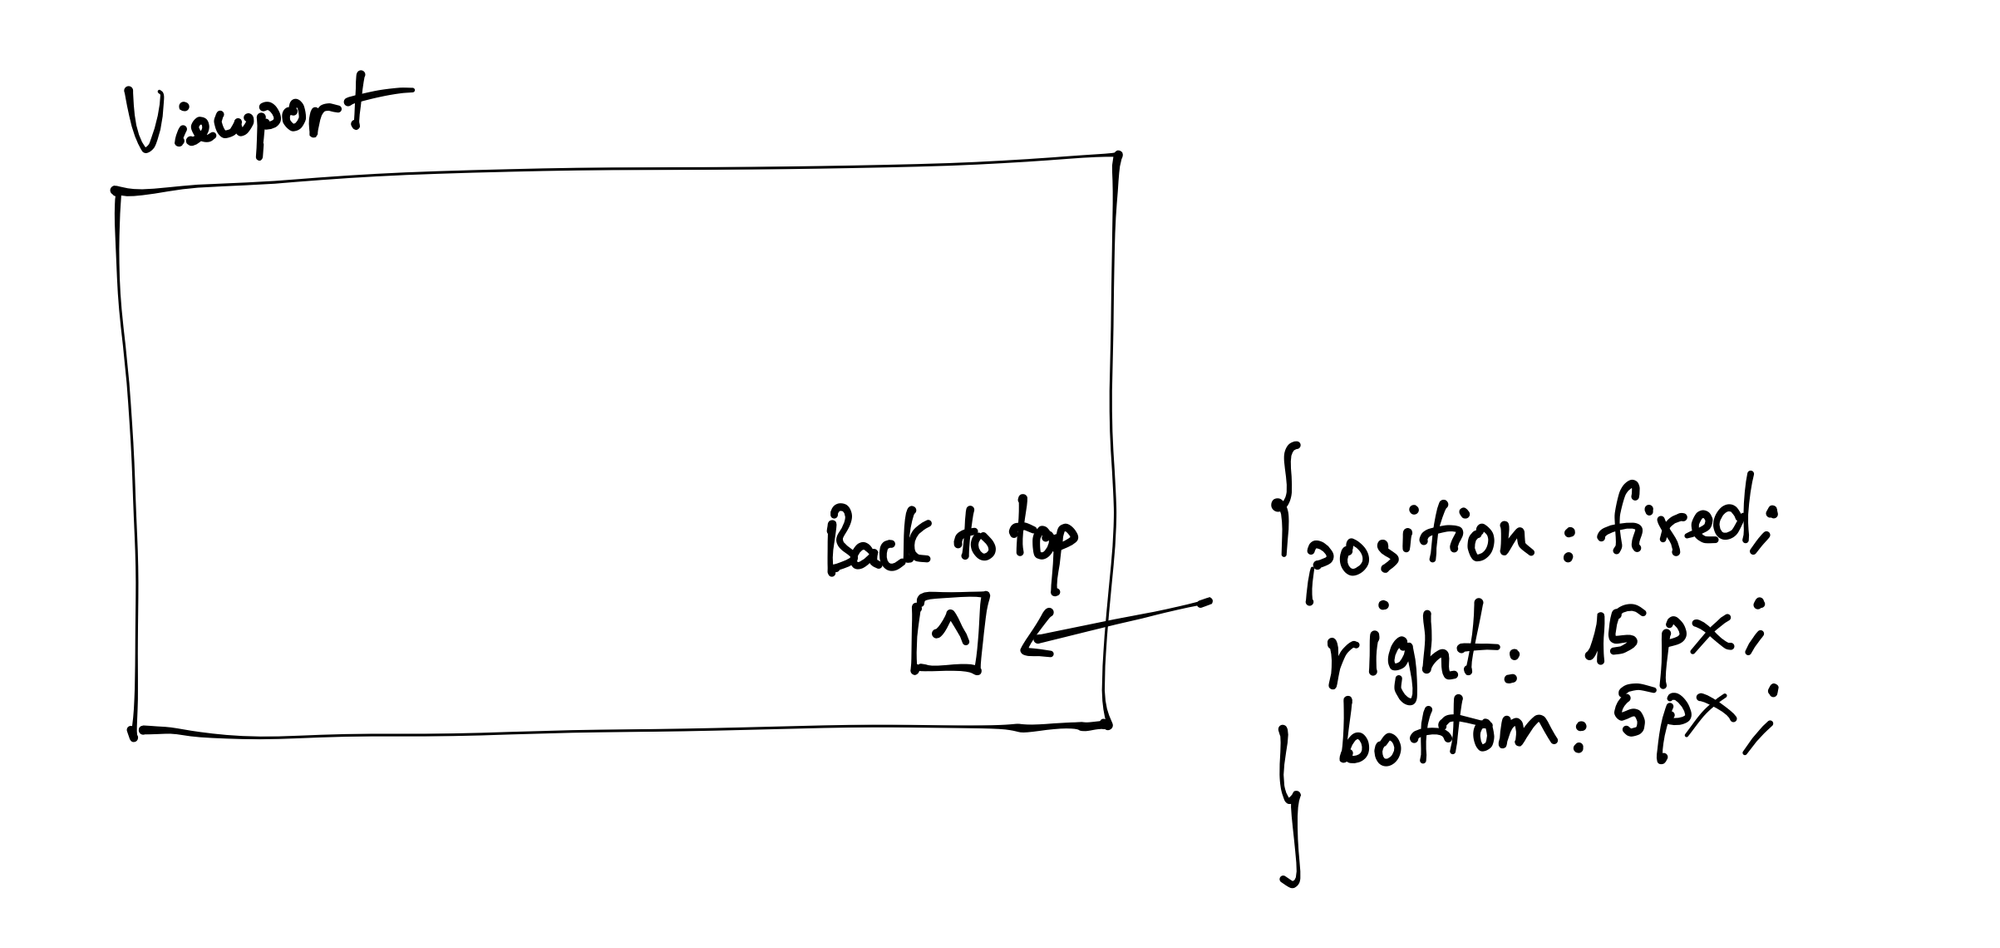 Viewport
Back to top
^
{
position: fixed;
right: 15px;
bottom: 5px;
}